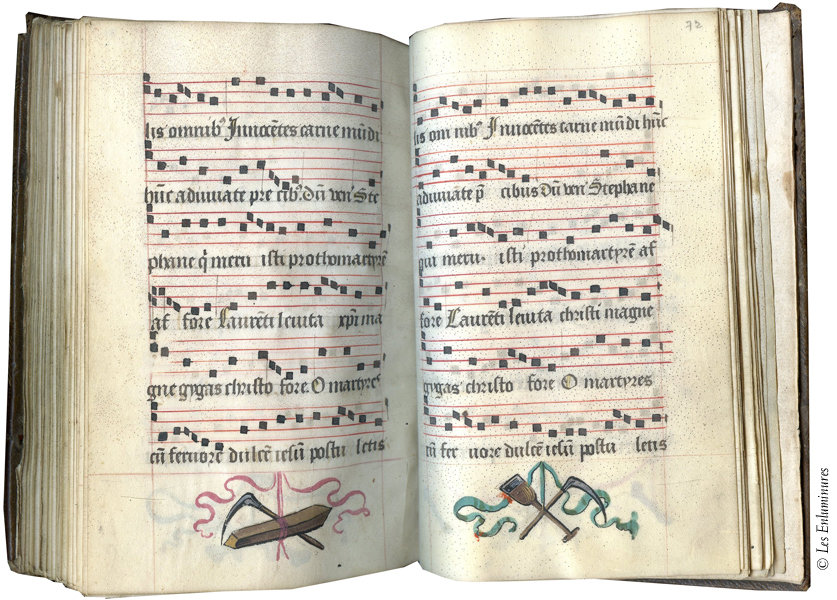 lis omnibꝰ Innocẽtes carne mũdi
hũc adiuuate pre cibꝰ. dũ venꝰ Ste
phane q̃ meru isti prothomartyrẽ
af fore Laurẽti leuita xp̃i ma
gne gygas christo fore. O martyres
cũ feruore dulcẽ iesũ postu letis
72
lis om nibꝰ Innocẽtes carne mũdi hũc
adiuuate p̃ cibus dũ venꝰ Stephane
qui meru isti prothomartyrẽ af
fore Laurẽti leuita christi magne
gygas christo fore O martyres
cũ fer uore dulcẽ iesũ postu letis
© Les Enluminures